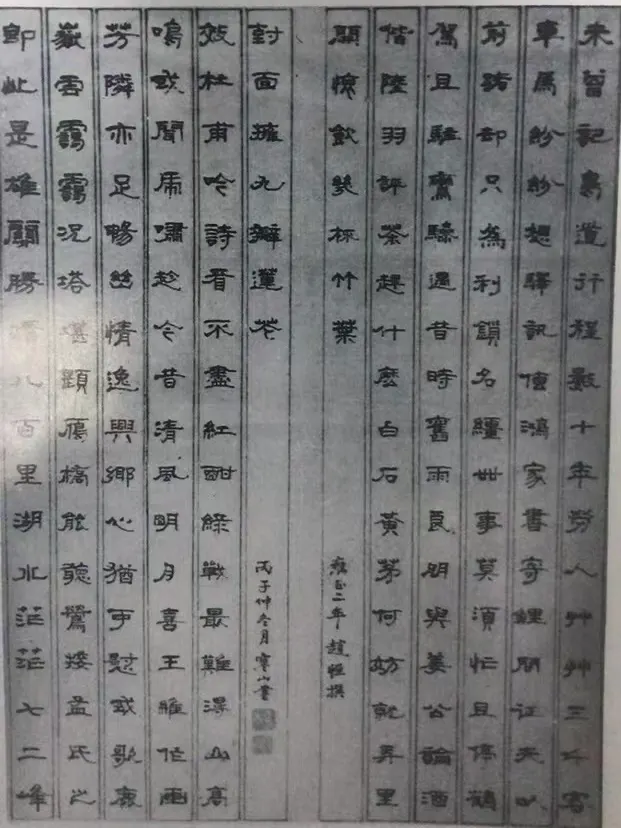 未曾記道行程數十年勞人艸艸三千客
車馬紛紛想驛訊傳鴻家書寄鯉問征夫以
前路却只為利鎖名韁世事莫須忙且停鶴
駕且駐鸞驂遇昔時舊雨良朋與姜公論酒
偕陸羽評茶趕什麽白石黃茅何妨就里
開懷飲幾杯竹葉
雍正二年趙恒撰
即此是雄關勝八百里湖水茫茫七二峰
嶽雲靄靄況塔堪題雁橋能聽鶯接孟氏之
芳隣亦足暢幽情逸興鄉心猶可慰或歌鹿
鳴或聞虎嘯趁今昔清風明月喜王維作畫
效杜甫吟詩看不盡紅酣綠戰最難得山高
封面擁九瓣蓮花
丙子仲冬月寒山書